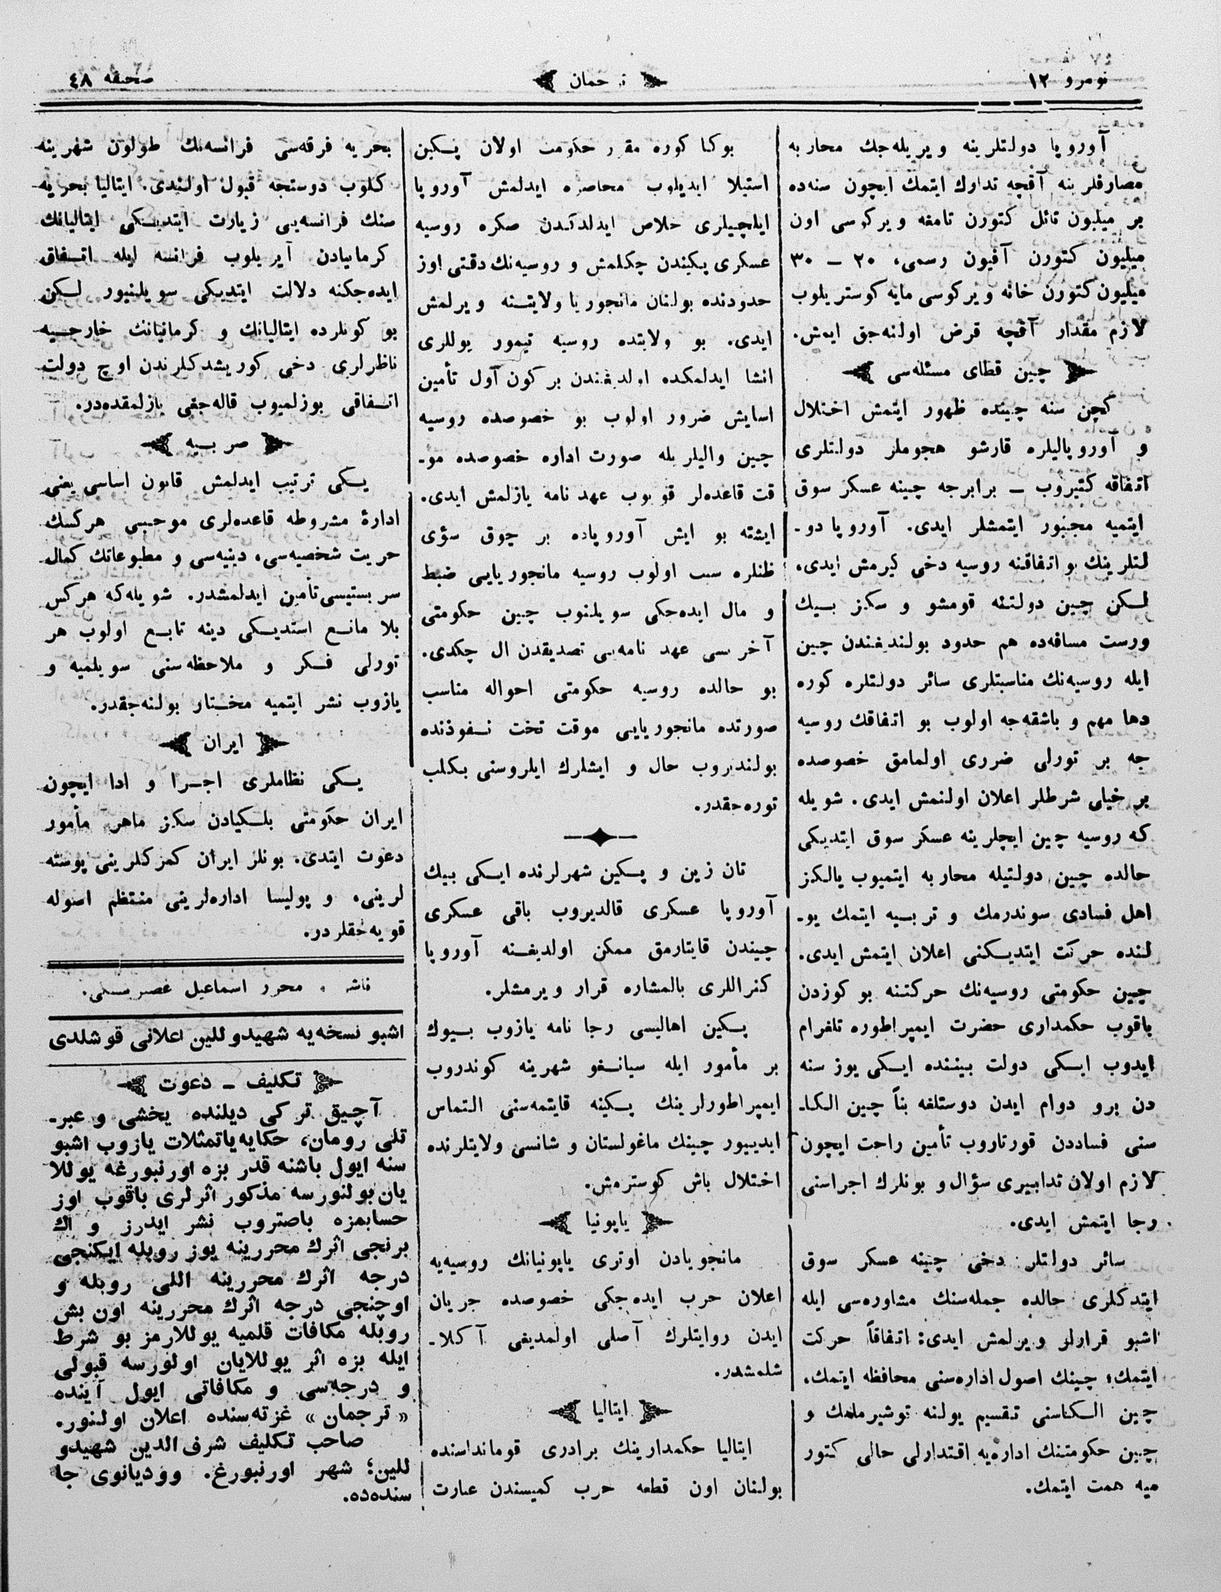 نومرو ١٢
ترجمان
صحیفه ٤٨
آوروپا دولتلرینه ویریله‌جك محاربه
مصارفلرینه آقچه تدارك ایتمك ایچون سنه‌ده
بر میلیون تائل کتورن تامغه ویرکوسی اون
میلیون کتورن آفیون رسمی، ٢٠ – ٣٠
میلیون کتورن خانه ویرکوسی مایه کوستریلوب
لازم مقدار آقچه قرض اولنه‌جق ایمش.
چین قطای مسئله‌سی
کچن سنه چینده ظهور ایتمش اختلال
و آوروپالیلره قارشو هجوملر دولتلری
اتفاقه کتیروب – برابرجه چینه عسکر سوق
ایتمیه مجبور ایتمشلر ایدی. آوروپا دو-
لتلرینك بو اتفاقنه روسیه دخی کیرمش ایدی.
لکن چین دولتنه قومشو و سکز بیك
ورست مسافه‌ده هم حدود بولندیغندن چین
ایله روسیه‌نك مناسبتلری سائر دولتلره کوره
دها مهم و باشقه‌جه اولوب بو اتفاقك روسیه
جه بر تورلی ضرری اولمامق خصوصده
بر خیلی شرطلر اعلان اولنمش ایدی. شویله
که روسیه چین ایچلرینه عسکر سوق ایتدیکی
حالده چین دولتیله محاربه ایتمیوب یالکز
اهل فسادی سوندرمك و تربیه ایتمك یو-
لنده حرکت ایتدیکنی اعلان ایتمش ایدی.
چین حکومتی روسیه‌نك حرکتنه بو کوزدن
باقوب حکمداری حضرت ایمپراطوره تلفرام
ایدوب ایکی دولت بیننده ایکی یوز سنه
دن برو دوام ایدن دوستلغه بناً چین الکا-
سنی فساددن قورتاروب تأمین راحت ایچون
لازم اولان تدابیری سؤال و بونلرك اجراسنی
رجا ایتمش ایدی.
سائر دولتلر دخی چینه عسکر سوق
ایتدکلری حالده جمله‌سنك مشاوره‌سی ایله
اشبو قرارلر ویرلمش ایدی: اتفاقاً حرکت
ایتمك؛ چینك اصول اداره‌سنی محافظه ایتمك،
چین الکاسنی تقسیم یولنه توشیرمامك و
چین حکومتنك اداره‌یه اقتدارلی حالی کتور
میه همت ایتمك.
بوکا کوره مقر حکومت اولان پکین
استیلا ایدیلوب محاصره ایدلمش آوروپا
ایلچیلری خلاص ایدلدکدن صکره روسیه
عسکری پکیندن چکلمش و روسیه‌نك دقتی اوز
حدودنده بولنان مانجوریا ولایتنه ویرلمش
ایدی. بو ولایتده روسیه تیمور یوللری
انشا ایدلمکده اولدیغندن بر کون آول تأمین
اسایش ضرور اولوب بو خصوصده روسیه
چین والیلریله صورت اداره خصوصده مو-
قت قاعده‌لر قویوب عهد نامه یازلمش ایدی.
ایشته بو ایش آوروپاده بر چوق سؤی
ظنلره سبب اولوب روسیه مانجوریایی ضبط
و مال ایده‌جکی سویلنوب چین حکومتی
آخرسی عهد نامه‌یی تصدیقدن ال چکدی.
بو حالده روسیه حکومتی احواله مناسب
صورتده مانجوریایی موقت تخت نفوذنده
بولندیروب حال و ایشلرك ایلروسنی بکلب
توره‌جقدر.
تان زین و پکین شهرلرنده ایکی بیك
آوروپا عسکری قالدیروب باقی عسکری
چیندن قایتارمق ممکن اولدیغنه آوروپا
کنراللری بالمشاره قرار ویرمشلر.
پکین اهالیسی رجا نامه یازوب بیوك
بر مأمور ایله سیانغو شهرینه کوندروب
ایمپراطورلرینك پکینه قایتمه‌سنی التماس
ایدییور چینك ماغولستان و شانسی ولایتلرنده
اختلال باش کوسترمش.
یاپونیا
مانجویادن اوتری یاپونیانك روسیه‌یه
اعلان حرب ایده‌جکی خصوصده جریان
ایدن روایتلرك آصلی اولمدیغی آکلا-
شلمشدر.
ایتالیا
ایتالیا حکمدارینك برادری قوماندا‌سنده
بولنان اون قطعه حرب کمیسندن عبارت
بحریه فرقه‌سی فرانسه‌نك طولون شهرینه
کلوب دوستجه قبول اولندی. ایتالیا بحریه
سنك فرانسه‌یی زیارت ایتدیکی ایتالیانك
کرمانیادن آیریلوب فرانسه ایله اتفاق
ایده‌جکنه دلالت ایتدیکی سویلنیور لکن
بو کونلرده ایتالیانك و کرمانیانك خارجیه
ناظرلری دخی کوریشدکلرندن اوچ دولت
اتفاقی بوزلمیوب قاله‌جغی یازلمقده‌در.
صربیه
یکی ترتیب ایدلمش قانون اساسی یعنی
ادارۀ مشروطه قاعده‌لری موجبی هرکسك
حریت شخصیه‌سی، دینیه‌سی و مطبوعاتك کمال
سربستیسی تأمین ایدلمشدر. شویله‌که هرکس
بلا مانع استدیکی دینه تابع اولوب هر
تورلی فکر و ملاحظه‌سنی سویلمیه و
یازوب نشر ایتمیه مختار بولنه‌جقدر.
ایران
یکی نظاملری اجرا و ادا ایچون
ایران حکومتی بلکیادن سکز ماهر مأمور
دعوت ایتدی. بونلر ایران کمرکلرینی پوسته
لرینی، و پولیسا اداره‌لرینی منتظم اسوله
قویه‌جقلردر.
ناشر و محرر اسماعیل غصپرینسکی.
اشبو نسخه‌یه شهیدوللین اعلانی قوشلدی
تکلیف – دعوت
آچیق ترکی دیلنده یخشی و عبر-
تلی رومان، حکایه یاتمثلات یازوب اشبو
سنه ایول باشنه قدر بزه اورنبورغه یوللا
یان بولنورسه مذکور اثرلری باقوب اوز
حسابمزه باصتروب نشر ایدرز و اك
برنجی اثرك محررینه یوز روبله ایکنجی
درجه اثرك محررینه اللی روبله و
اوچنجی درجه اثرك محررینه اون بش
روبله مکافات قلمیه یوللارمز بو شرط
ایله بزه اثر یوللایان اولورسه قبولی
و درجه‌سی و مکافاتی ایول آینده
«ترجمان» غزته‌سنده اعلان اولنور.
صاحب تکلیف شرف الدین شهیدو
للین؛ شهر اورنبورغ. وودیانوی جا
سنده‌ده.